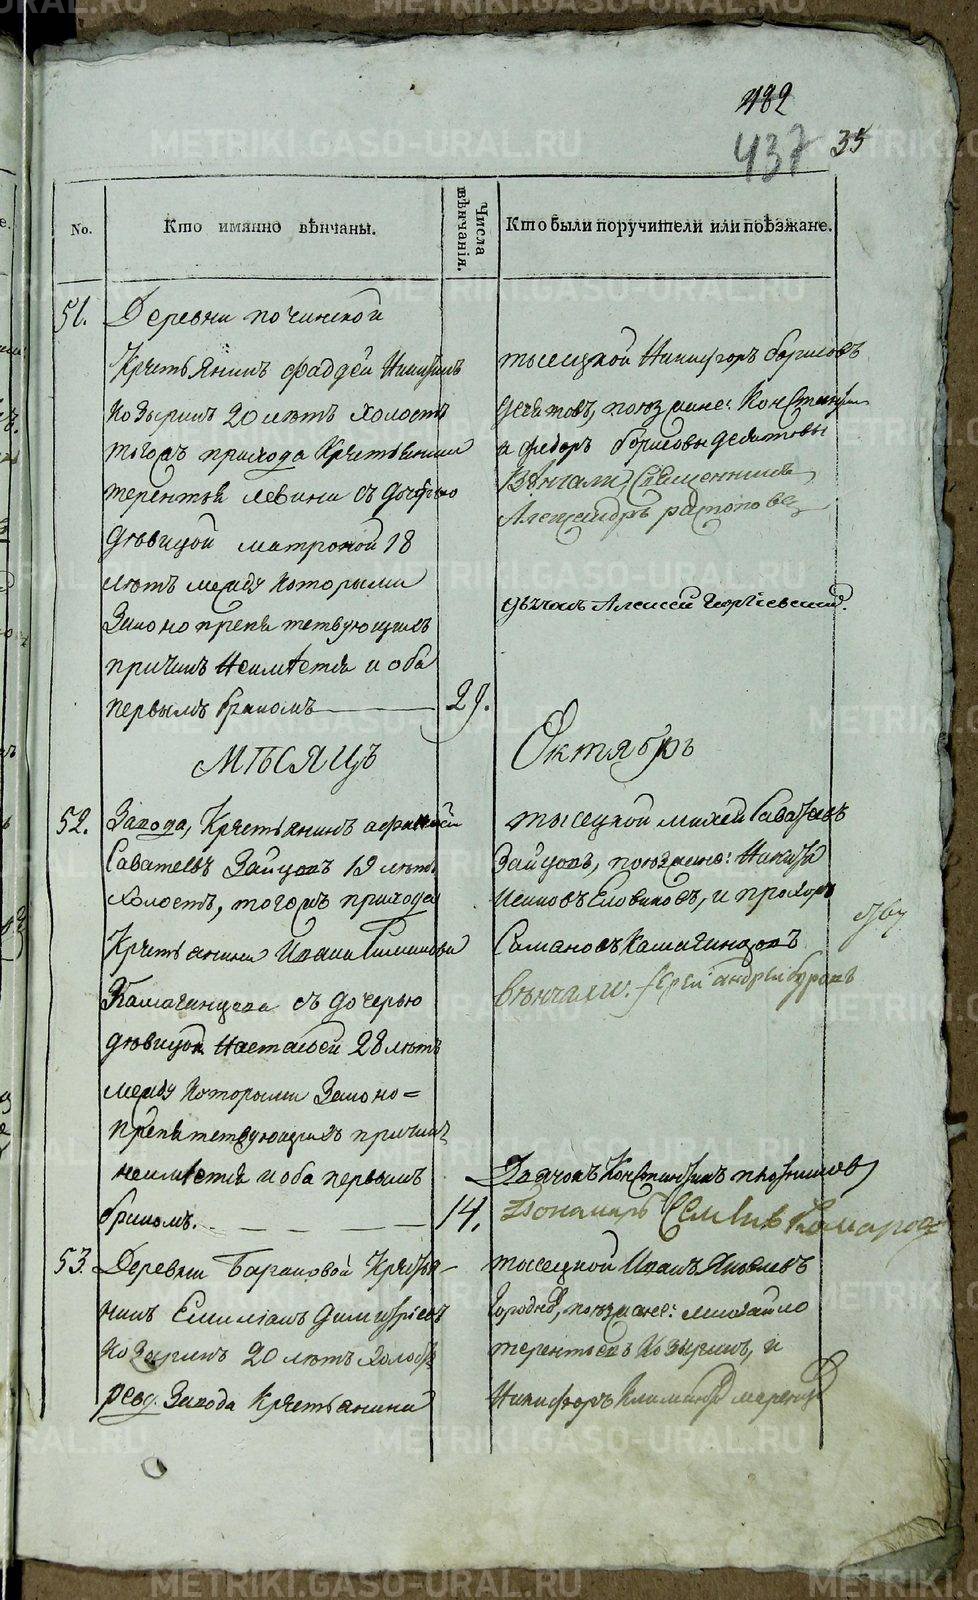 482
437 35
No.
Кто имянно вѣнчаны.
Числа вѣнчанія.
Кто были поручители или поѣзжане.
51. Деревни починской
Крестьянинъ фаддей
Козыринъ 20 лѣтъ холостъ
тогожъ прихода Крестьянина
терентья левина съ дочерью
дѣвицой матроной 18
лѣтъ между которыми
Законопрепятствующихъ
причинъ неимѣется и оба
первымъ бракомъ 29.
тысецкой Никифоръ борисовъ
поюзжане:
и федоръ борисовы
Вѣнчали Священникъ
Александръ
дьячокъ Алексей Георгіевский.
МѢСЯЦЪ Октябрь
52. Завода, Крестьянинъ
Саватеевъ Зайцовъ 19 лѣтъ
холостъ, тогожъ прихода
Крестьянина Ивана
съ дочерью
дѣвицой Настасьей 28 лѣтъ
между которыми Законо=
препятствующихъ причинъ
неимѣется и оба первымъ
бракомъ. 14.
тысецкой михей Саватеевъ
Зайцовъ, поюзжане: Никита
и прохоръ
вѣнчали. Іерей андрей бураковъ
Дьячокъ Константинъ
Пономарь Комаровъ
53. Деревни Барановой Крестья-
нинъ Емиліанъ димитріевъ
Козыринъ 20 лѣтъ холостъ
ревд. Завода Крестьянина
тысецкой Иванъ Яковлевъ
поюзжане: михайло
терентьевъ Козыринъ, и
Никифоръ